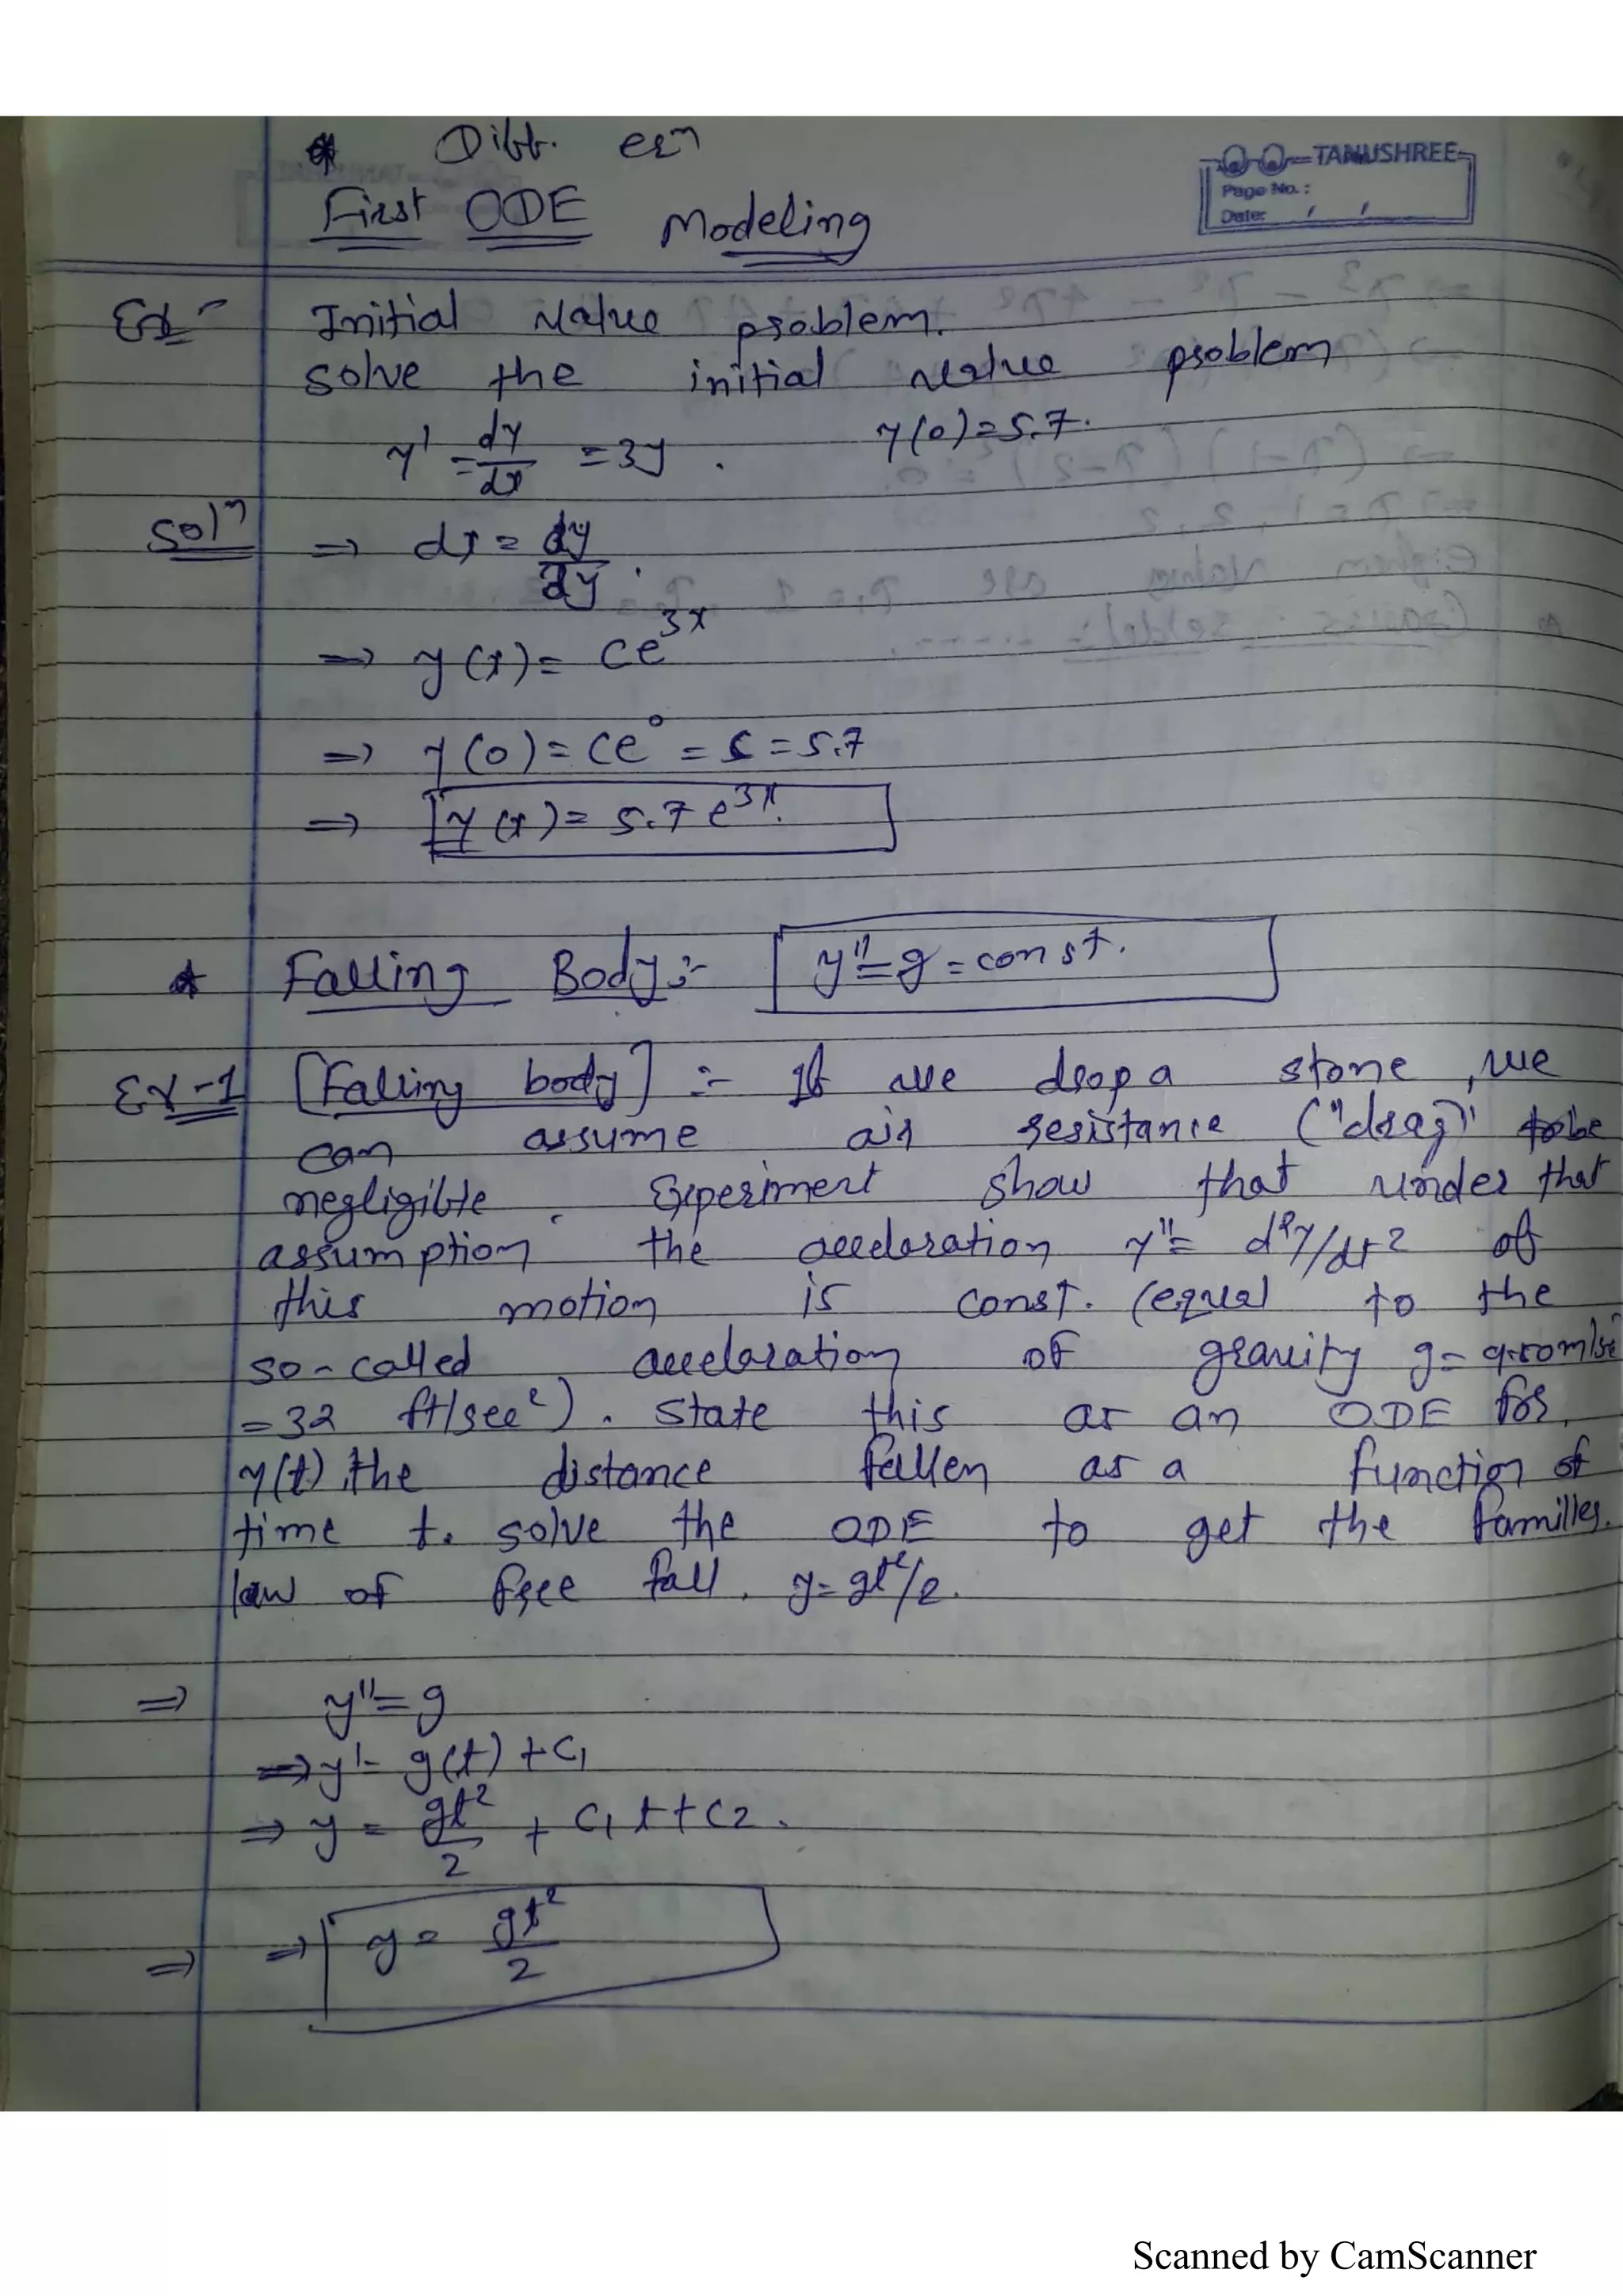 * Diff. eqn
TANUSHREE
Page No.:
Date: / /
First ODE Modeling
Ex- Initial value problem.
solve the initial value problem
y' = dy/dx = 3y . y(0)=5.7.
Soln => dx = dy/3y .
=> y(x)= ce^3x
=> y(0)= ce^0 = c = 5.7
=> y(x)= 5.7 e^3x.
* Falling Body:- y''=g = const.
Ex-1 [Falling body] :- If we drop a stone, we
can assume air resistance ("drag") to be
negligible. Experiment show that under that
assumption the acceleration y''= d²y/dt² of
this motion is const. (equal to the
so-called acceleration of gravity g= 9.80 m/sec²
=32 ft/sec²). State this as an ODE for
y(t), the distance fallen as a function of
time t. solve the ODE to get the familles.
law of free fall. y= gt²/2.
=> y''=g
=> y'= g(t) + c1
=> y = gt²/2 + c1 t + c2.
=> => y = gt²/2
Scanned by CamScanner